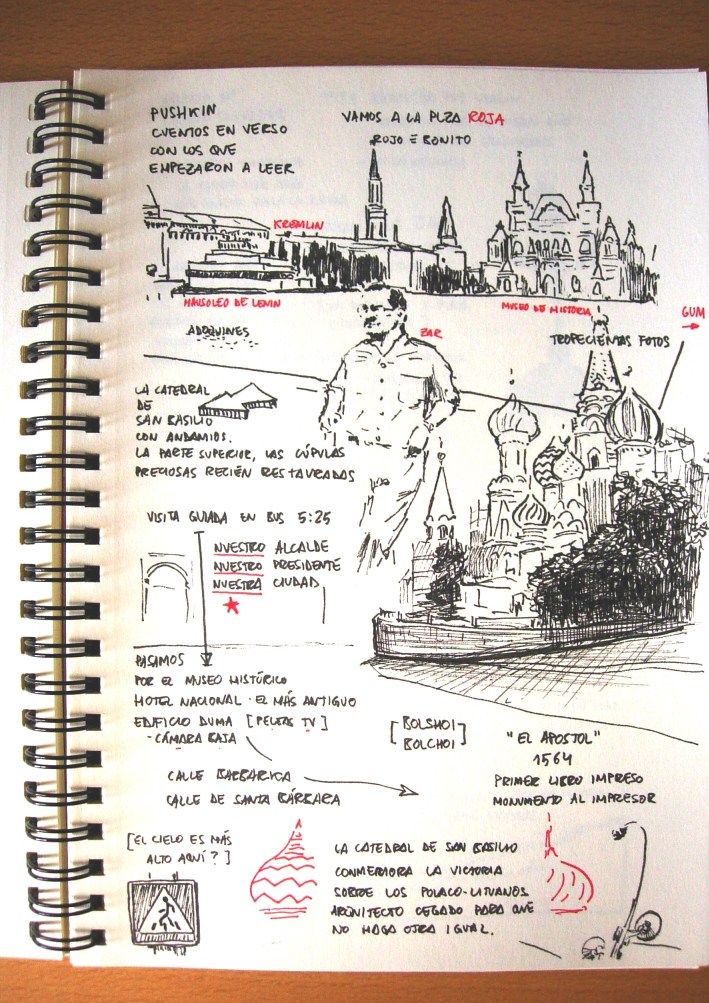 PUSHKIN
CUENTOS EN VERSO
CON LOS QUE
EMPEZARON A LEER
VAMOS A LA PLZA ROJA
ROJO = BONITO
KREMLIN
MAUSOLEO DE LENIN
MUSEO DE HISTORIA
GUM
ADOQUINES
ZAR
TROPECIENTAS FOTOS
LA CATEDRAL
DE
SAN BASILIO
CON ANDAMIOS.
LA PARTE SUPERIOR, LAS CÚPULAS
PRECIOSAS RECIÉN RESTAURADAS
VISITA GUIADA EN BUS 5:25
NUESTRO ALCALDE
NUESTRO PRESIDENTE
NUESTRA CIUDAD
PASAMOS
POR EL MUSEO HISTÓRICO
HOTEL NACIONAL · EL MÁS ANTIGUO
EDIFICIO DUMA [PELEAS TV]
- CÁMARA BAJA
[BOLSHOI
BOLCHOI]
"EL APOSTOL"
1564
PRIMER LIBRO IMPRESO
MONUMENTO AL IMPRESOR
CALLE BARBARICA
CALLE DE SANTA BÁRBARA
[EL CIELO ES MÁS
ALTO AQUÍ?]
LA CATEDRAL DE SAN BASILIO
CONMEMORA LA VICTORIA
SOBRE LOS POLACO-LITUANOS
ARQUITECTO CEGADO PARA QUE
NO HAGA OTRA IGUAL.